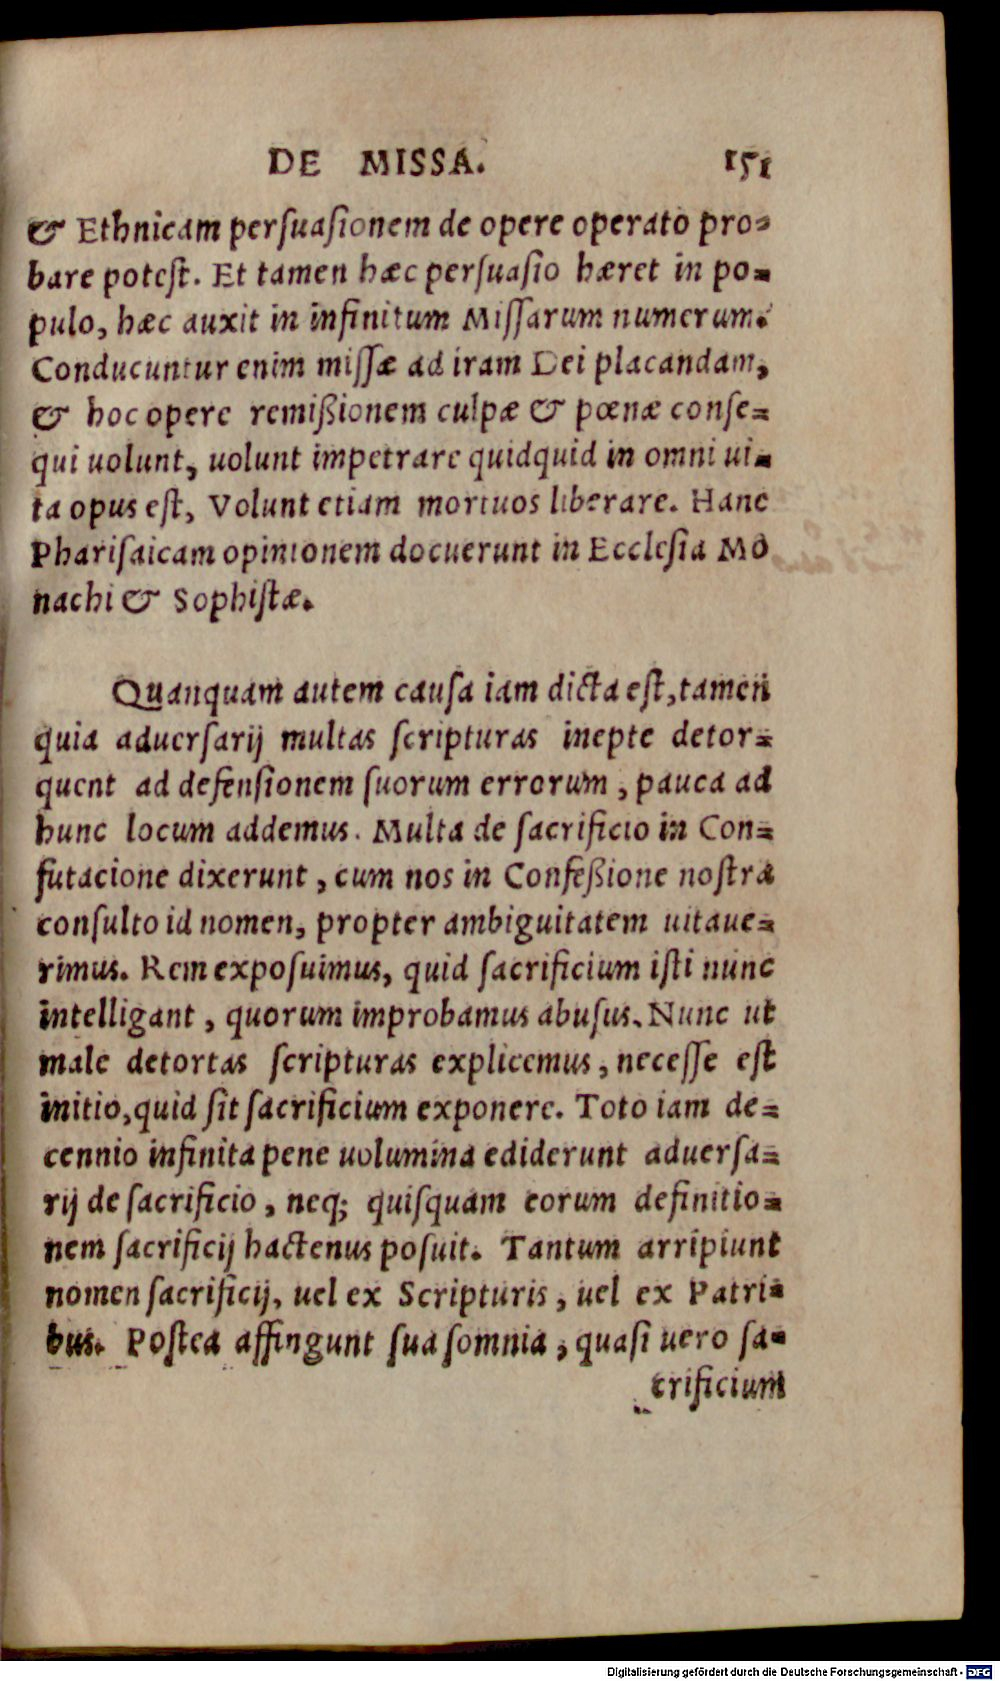 DE MISSA. 151
& Ethnicam perſuaſionem de opere operato pro=
bare poteſt. Et tamen hæc perſuaſio hæret in po=
pulo, hæc auxit in infinitum Miſſarum numerum.
Conducuntur enim miſſæ ad iram Dei placandam,
& hoc opere remißionem culpæ & pœnæ conſe=
qui uolunt, uolunt impetrare quidquid in omni ui=
ta opus eſt, Volunt etiam mortuos liberare. Hanc
Phariſaicam opinionem docuerunt in Eccleſia Mo
nachi & Sophiſtæ.
Quanquam autem cauſa iam dicta eſt, tamen
quia aduerſarij multas ſcripturas inepte detor=
quent ad defenſionem ſuorum errorum, pauca ad
hunc locum addemus. Multa de ſacrificio in Con=
futacione dixerunt, cum nos in Confeßione noſtra
conſulto id nomen, propter ambiguitatem uitaue=
rimus. Rem expoſuimus, quid ſacrificium iſti nunc
intelligant, quorum improbamus abuſus. Nunc ut
male detortas ſcripturas explicemus, neceſſe eſt
initio, quid ſit ſacrificium exponere. Toto iam de=
cennio infinita pene uolumina ediderunt aduerſa=
rij de ſacrificio, neq; quiſquam eorum definitio=
nem ſacrificij hactenus poſuit. Tantum arripiunt
nomen ſacrificij, uel ex Scripturis, uel ex Patri=
bus. Poſtea affingunt ſua ſomnia, quaſi uero ſa=
crificium
Digitalisierung gefördert durch die Deutsche Forschungsgemeinschaft - DFG